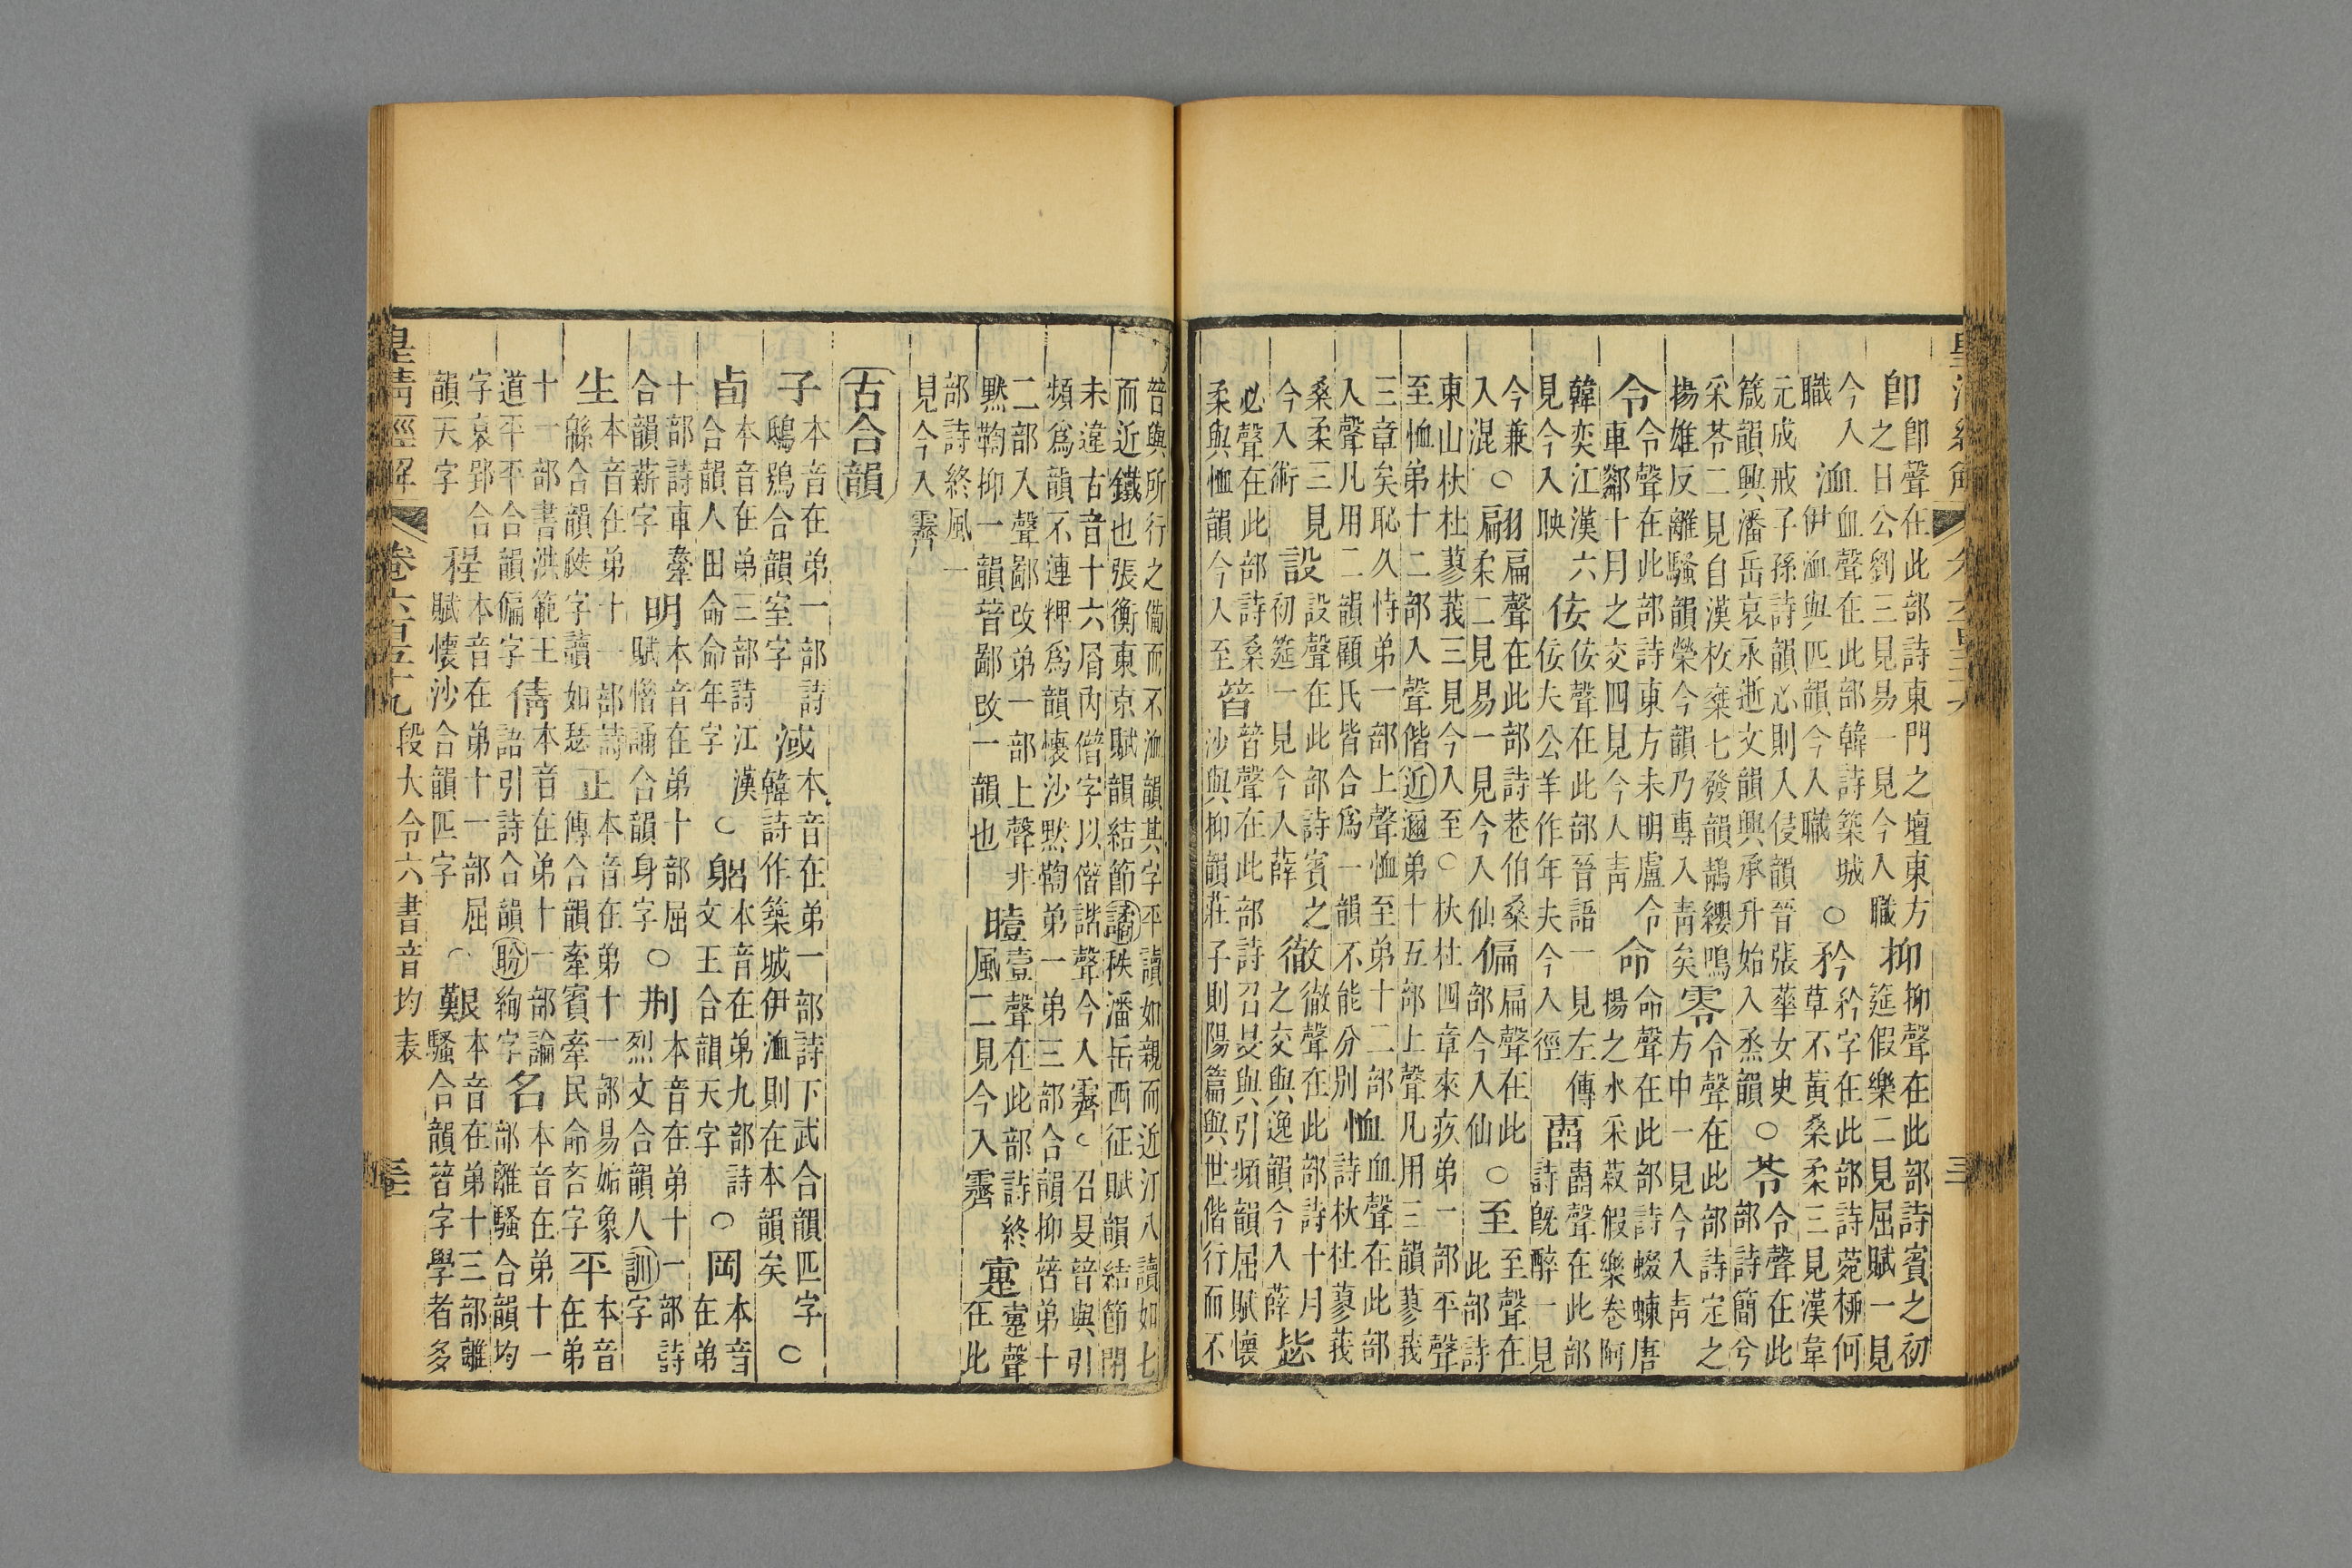 卽卽聲在此部詩東門之壇東方之日公劉三見易一見今入職抑抑聲在此部詩賓之初筵假樂二見屈賦一見
今入職洫血聲在此部韓詩築城伊洫與匹韻今入職○矜矜字在此部詩菀桺何草不黃桑柔三見漢韋
元成戒子孫詩韻心則入侵韻晉張華女史箴韻興潘岳哀永逝文韻興承升始入烝韻○苓令聲在此部詩簡兮
采苓二見自漢枚乘七發韻鵲纓鳴揚雄反離騷韻榮今韻乃專入靑矣零令聲在此部詩定之方中一見今入靑
令令聲在此部詩東方未明盧令車鄰十月之交四見今入靑命命聲在此部詩蝃蝀唐揚之水采菽假樂卷阿
韓奕江漢六見今入映佞佞聲在此部晉語一見左傳佞夫公羊作年夫今入徑聲在此部詩旣醉一見
今兼入混○翩扁聲在此部詩巷伯桑柔二見易一見今入仙偏扁聲在此部今入仙○至至聲在此部詩
東山杕杜蓼莪三見今入至○杕杜四章來疚弟一部平聲至恤弟十二部入聲偕近邇弟十五部上聲凡用三韻蓼莪
三章矣恥久恃弟一部上聲恤至弟十二部入聲凡用二韻顧氏皆合爲一韻不能分別恤血聲在此部詩杕杜蓼莪
桑柔三見今入術設設聲在此部詩賓之初筵一見今入薛徹徹聲在此部詩十月之交與逸韻今入薛毖
必聲在此部詩桑柔與恤韻今入至替替聲在此部詩召旻與引頻韻屈賦懷沙與抑韻莊子則陽篇與世偕行而不
替與所行之備而不洫韻其字平讀如親而近汀入讀如七而近鐵也張衡東京賦韻結節譎秩潘岳西征賦韻結節閉
未違古音十六屑內僣字以僣諧聲今入霽○召旻替與引頻爲韻不連押爲韻懷沙默鞫弟一弟三部合韻抑替弟十
二部入聲鄙改弟一部上聲非默鞫抑一韻替鄙改一韻也曀壹聲在此部詩終風二見今入霽疐疐聲在此
部詩終風一見今入霽
古合韻
子本音在弟一部詩鴟鴞合韻室字淢本音在弟一部詩下武合韻匹字韓詩作築城伊洫則在本韻矣○
卣本音在弟三部詩江漢合韻人田命命年字○躬本音在弟九部詩文王合韻天字○岡本音在弟
十部詩車舝合韻薪字明本音在弟十部屈賦惜誦合韻身字○刑本音在弟十一部詩烈文合韻人訓字
生本音在弟十一部詩緜合韻瓞字讀如瑟正本音在弟十一部易姤象傳合韻牽賓牽民命吝字平本音在弟
十一部書洪範王道平平合韻偏字倩本音在弟十一部論語引詩合韻盼絢字名本音在弟十一部離騷合韻均
字哀郢合韻天字程本音在弟十一部屈賦懷沙合韻匹字○艱本音在弟十三部離騷合韻替字學者多
皇清經解 卷六百五十九 段大令六書音均表